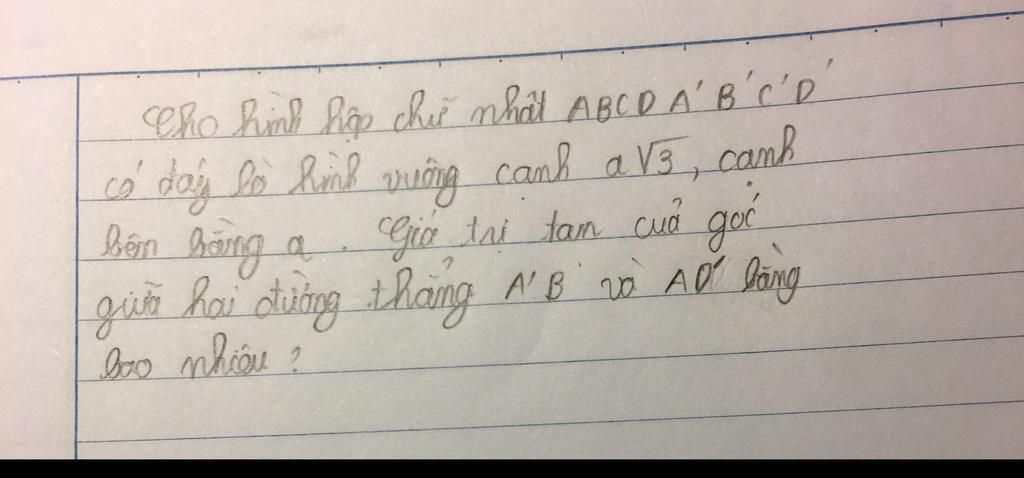 Cho hình hộp chữ nhật ABCD A'B'C'D'
có đáy là hình vuông cạnh a√3, cạnh
bên bằng a. Giá trị tan của góc
giữa hai đường thẳng A'B và AD' bằng
bao nhiêu?